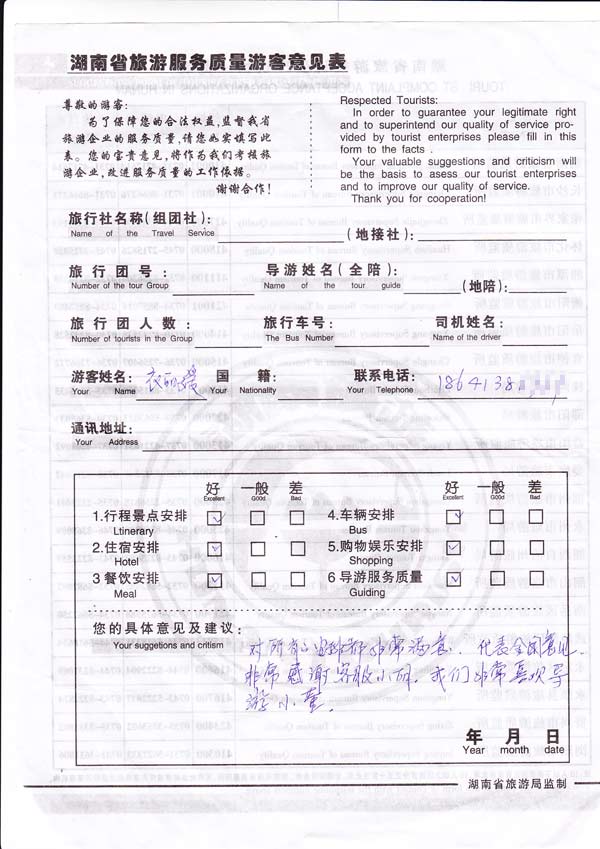 湖南省旅游服务质量游客意见表
尊敬的游客:
为了保障您的合法权益,监督我省
旅游企业的服务质量,请您如实填写此
表。您的宝贵意见,将作为我们考核旅
游企业,改进服务质量的工作依据。
谢谢合作!
Respected Tourists:
In order to guarantee your legitimate right
and to superintend our quality of service pro-
vided by tourist enterprises please fill in this
form to the facts .
Your valuable suggestions and criticism will
be the basis to asess our tourist enterprises
and to improve our quality of service.
Thank you for cooperation!
旅行社名称(组团社): (地接社):
Name of the Travel Service
旅行团号: 导游姓名(全陪): (地陪):
Number of the tour Group Name of the tour guide
旅行团人数: 旅行车号: 司机姓名:
Number of tourists in the Group The Bus Number Name of the driver
游客姓名: 国籍: 联系电话: 1864138
Your Name Your Nationality Your Telephone
通讯地址:
Your Address
好 一般 差 好 一般 差
Excellent Good Bad Excellent Good Bad
1.行程景点安排 4.车辆安排
Ltinerary Bus
2.住宿安排 5.购物娱乐安排
Hotel Shopping
3 餐饮安排 6 导游服务质量
Meal Guiding
您的具体意见及建议: 对所有安排都非常满意、代表全团意见
Your suggetions and critism
非常感谢客服小丽、我们非常喜欢导
游小董
年 月 日
Year month date
湖南省旅游局监制